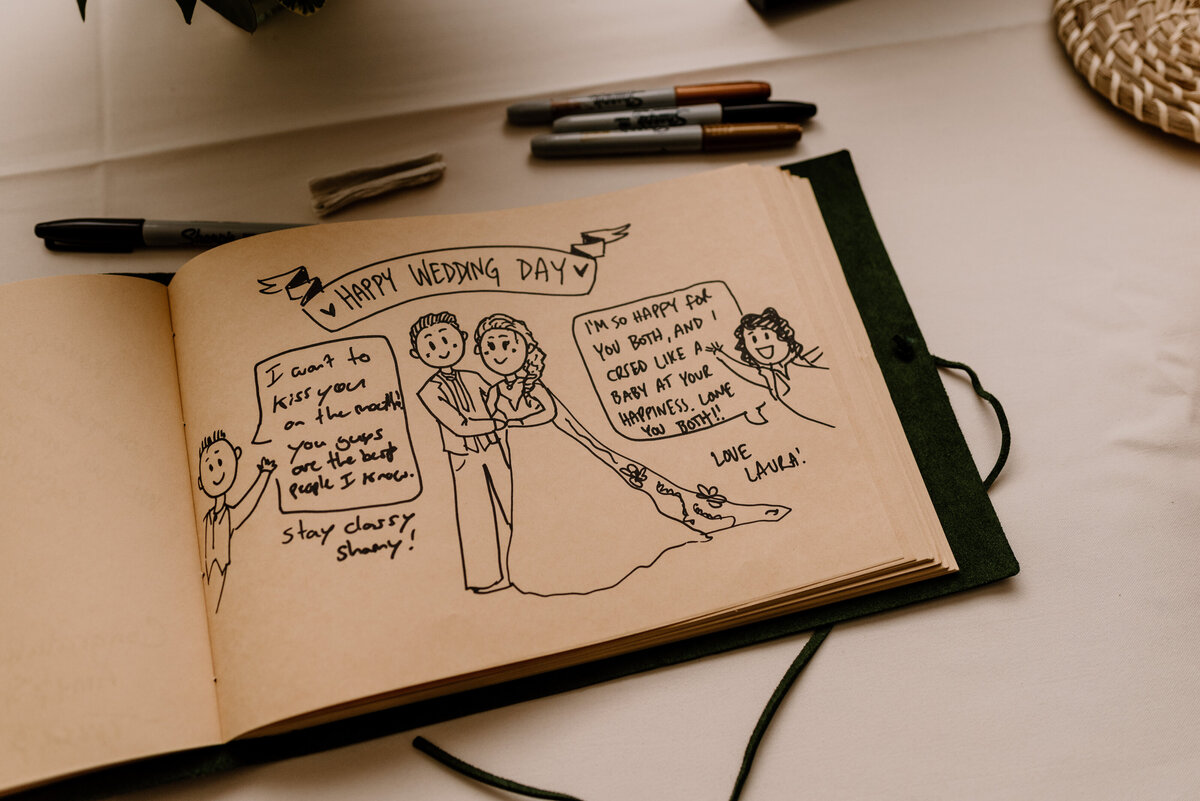 Sharpie
HAPPY WEDDING DAY
I want to
kiss you
on the mouth!
you guys
are the best
people I know.
stay classy
shamy!
I'M SO HAPPY FOR
YOU BOTH, AND I
CRIED LIKE A
BABY AT YOUR
HAPPINESS. LOVE
YOU BOTH!!
LOVE
LAURA!